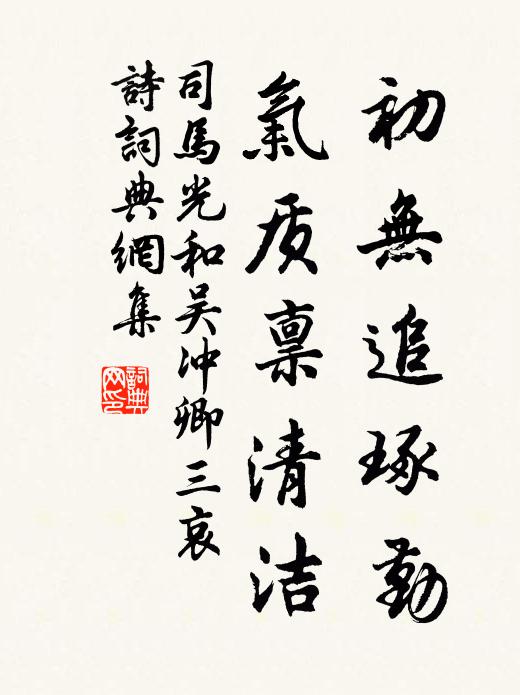 初無追琢勤
氣质禀清洁
司馬光和吴冲卿三哀
詩詞典網集
詞典网印